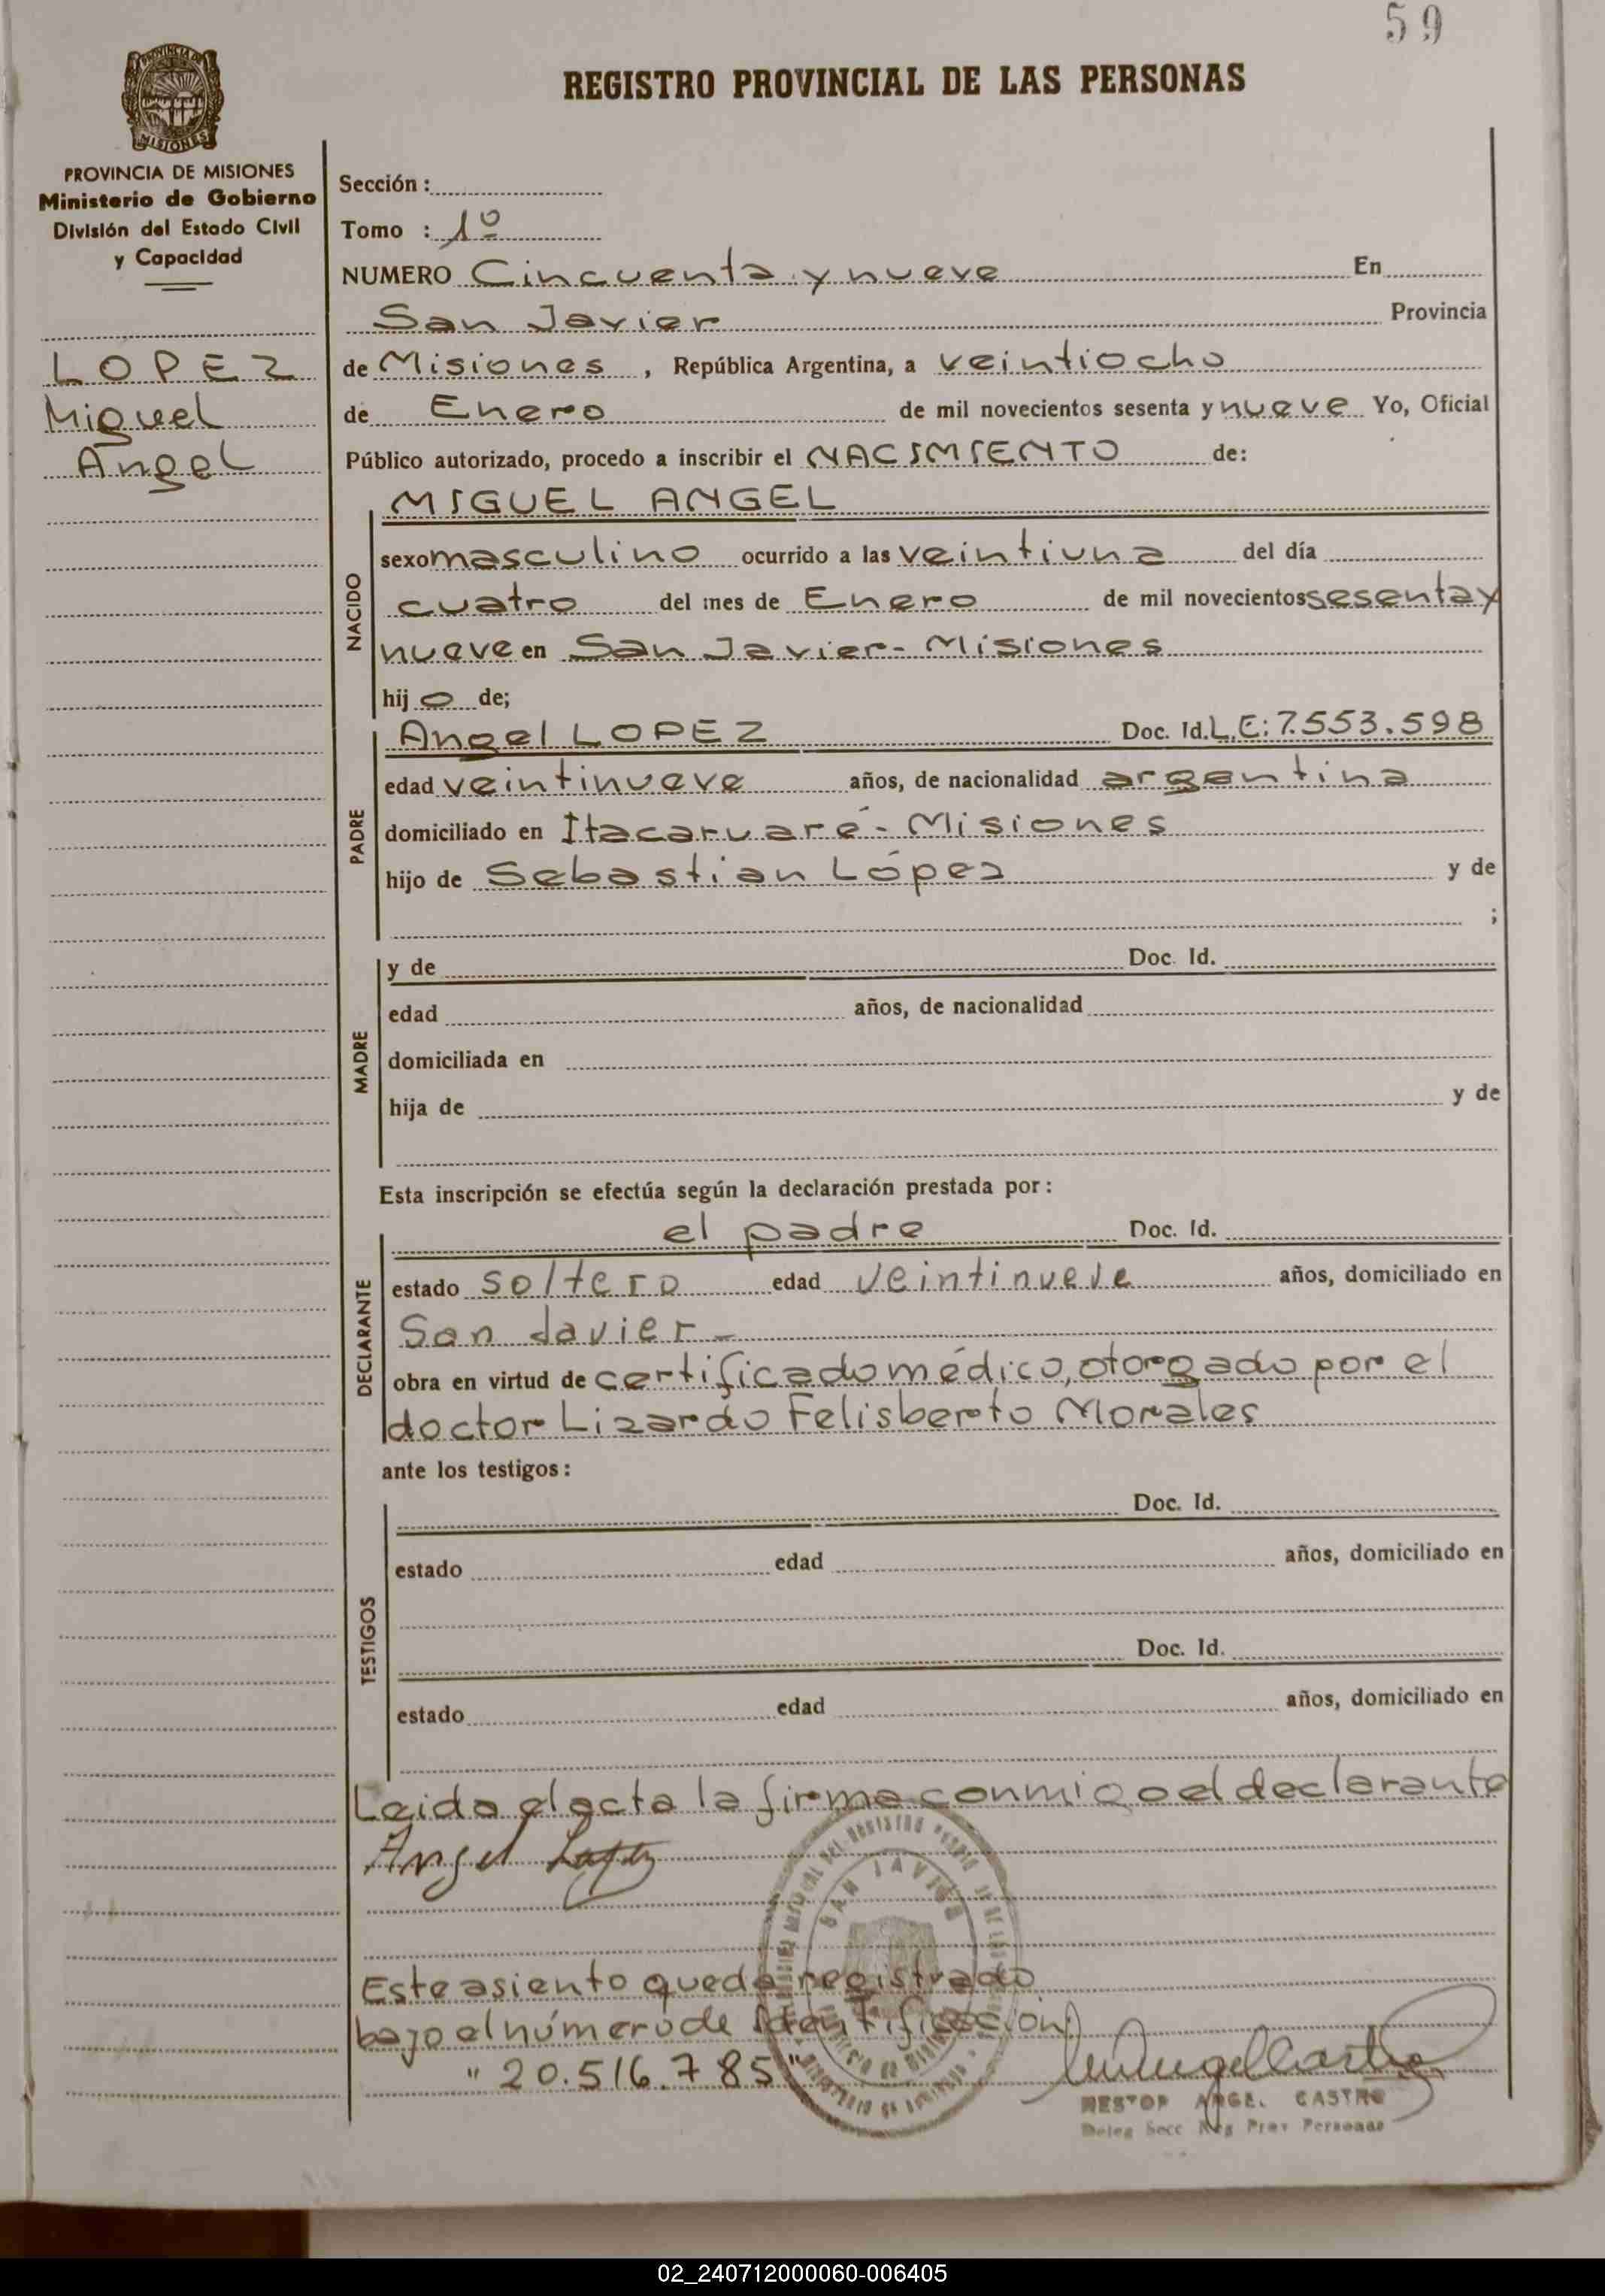 59
REGISTRO PROVINCIAL DE LAS PERSONAS
MISIONES
PROVINCIA DE MISIONES
Ministerio de Gobierno
División del Estado Civil
y Capacidad
LOPEZ
Miguel
Angel
Sección :
Tomo : 1º
NUMERO Cincuenta y nueve En
San Javier Provincia
de Misiones , República Argentina, a veintiocho
de Enero de mil novecientos sesenta y nueve Yo, Oficial
Público autorizado, procedo a inscribir el NACIMIENTO de:
NACIDO
MIGUEL ANGEL
sexo masculino ocurrido a las veintiuna del día
cuatro del mes de Enero de mil novecientos sesenta y
nueve en San Javier - Misiones
hij o de;
PADRE
Angel LOPEZ Doc. Id. L.E: 7.553.598
edad veintinueve años, de nacionalidad argentina
domiciliado en Itacaruaré - Misiones
hijo de Sebastian López y de
;
MADRE
y de Doc. Id.
edad años, de nacionalidad
domiciliada en
hija de y de
Esta inscripción se efectúa según la declaración prestada por :
DECLARANTE
el padre Doc. Id.
estado soltero edad veintinueve años, domiciliado en
San Javier -
obra en virtud de certificado médico, otorgado por el
doctor Lizardo Felisberto Morales
ante los testigos :
TESTIGOS
Doc. Id.
estado edad años, domiciliado en
Doc. Id.
estado edad años, domiciliado en
Leida el acta la firma conmigo el declarante
Angel Lopez
SAN JAVIER
Este asiento queda registrado
bajo el número de identificación
"20.516.785"
NESTOR ANGEL CASTRO
Deleg Secc Reg Prov Personas
02_240712000060-006405